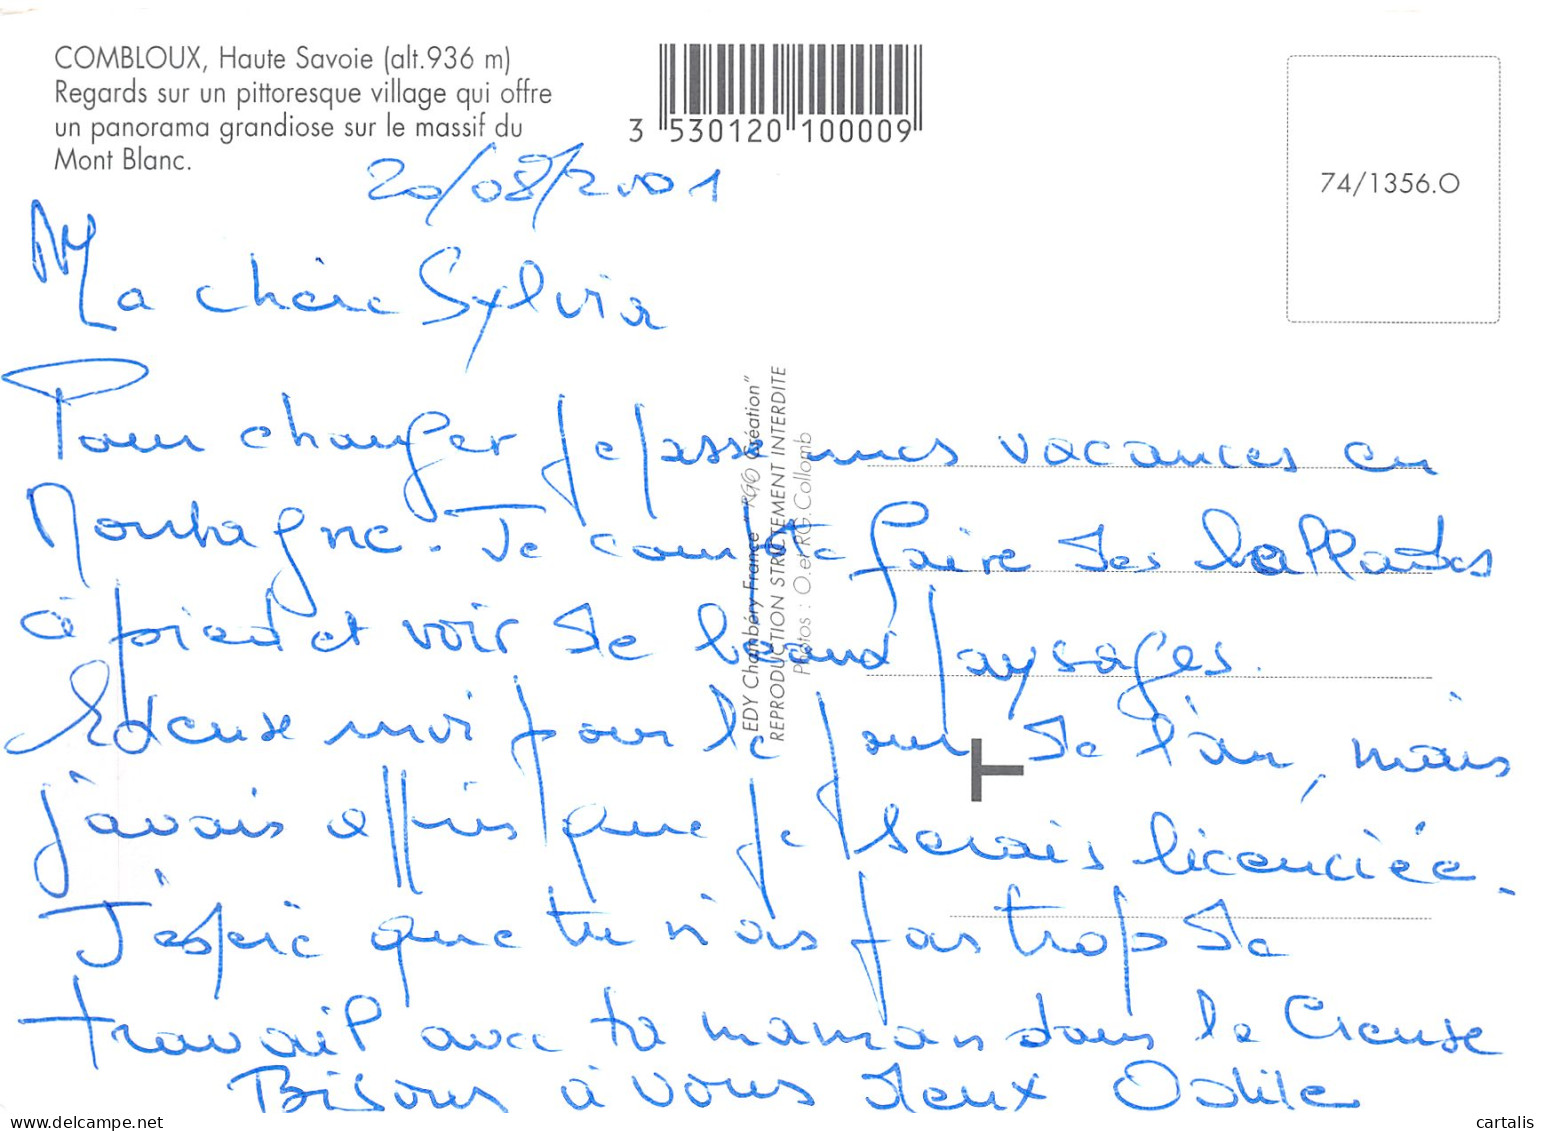 COMBLOUX, Haute Savoie (alt.936 m)
Regards sur un pittoresque village qui offre
un panorama grandiose sur le massif du
Mont Blanc.
3 530120 100009
74/1356.O
20/08/2001
Ma chère Sylvia
Pour changer je passe mes vacances en
Montagne. Je compte faire des ballades
à pied et voir de beaux paysages.
Excuse moi pour le jour de l'an, mais
j'avais appris que je serais licenciée.
J'espère que tu n'as pas trop de
travail avec ta maman dans la Creuse
Bisous à vous deux Odile
EDY Chambéry France "RGO Création"
REPRODUCTION STRICTEMENT INTERDITE
Photos : O. et RG. Collomb
www.delcampe.net
cartalis